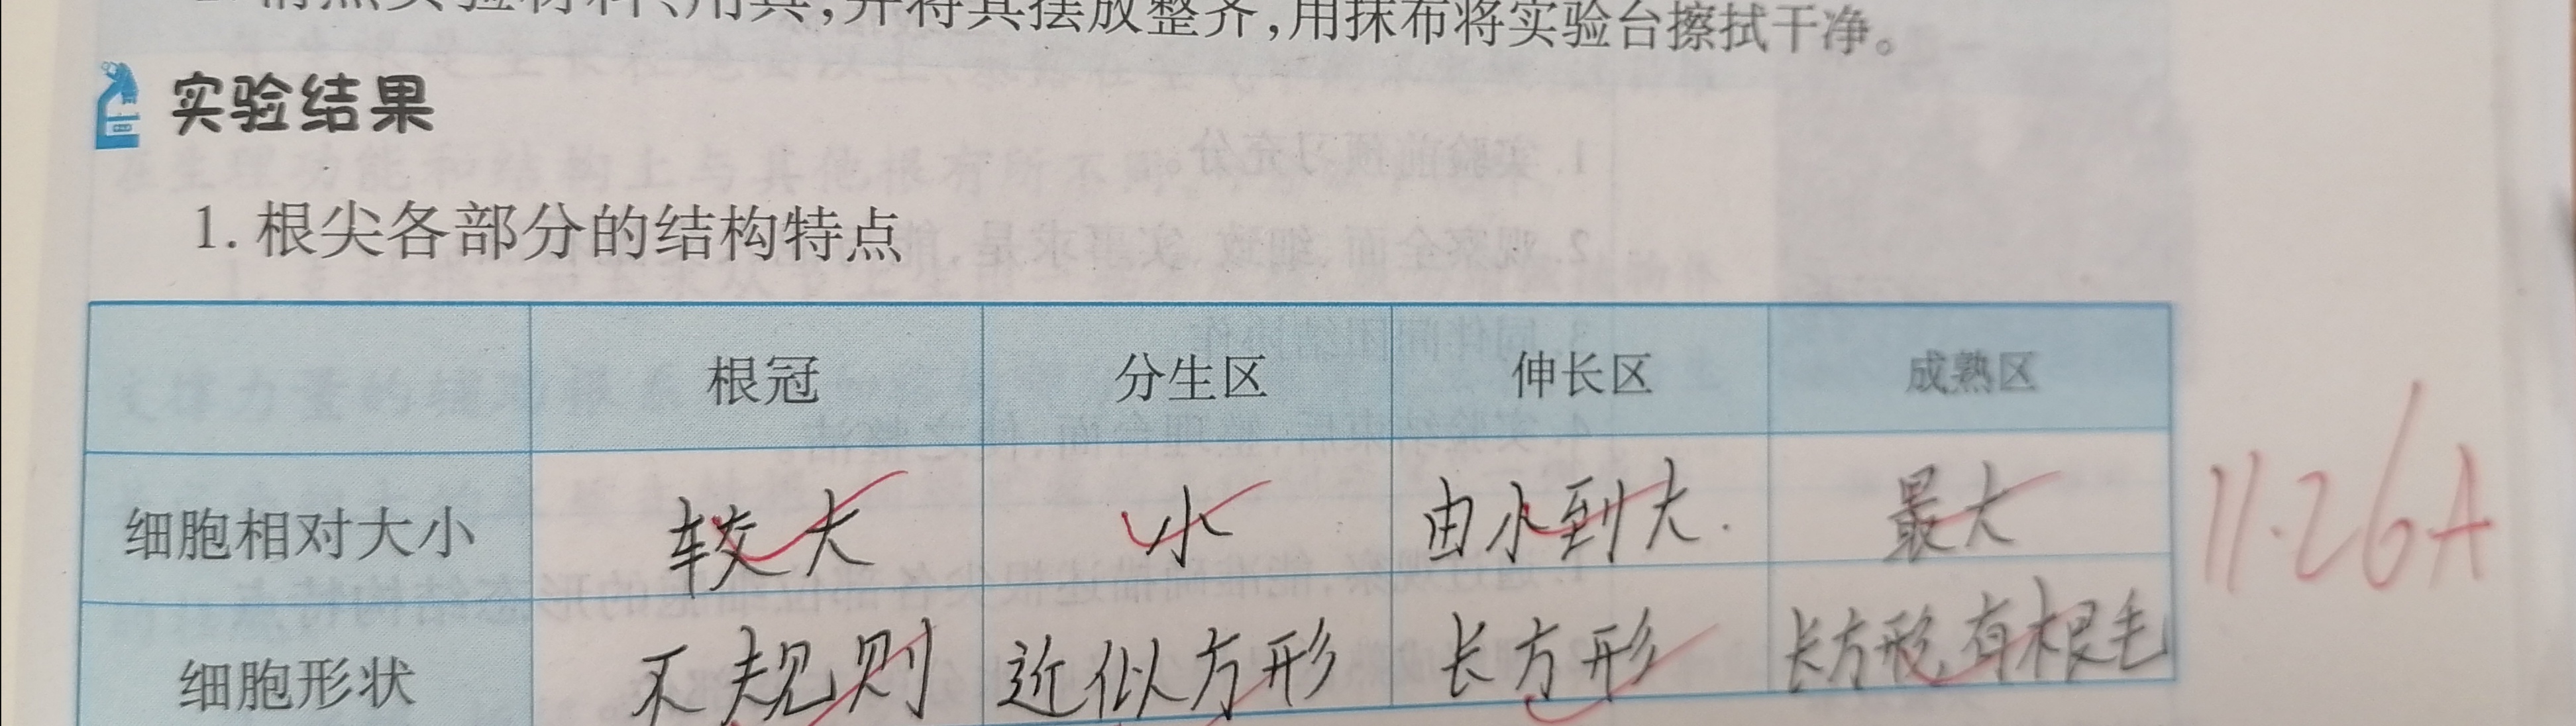 清点实验材料、用具,并将其摆放整齐,用抹布将实验台擦拭干净。
实验结果
1. 根尖各部分的结构特点
根冠 分生区 伸长区 成熟区
细胞相对大小 较大 小 由小到大. 最大
11.26A
细胞形状 不规则 近似方形 长方形 长方形,有根毛